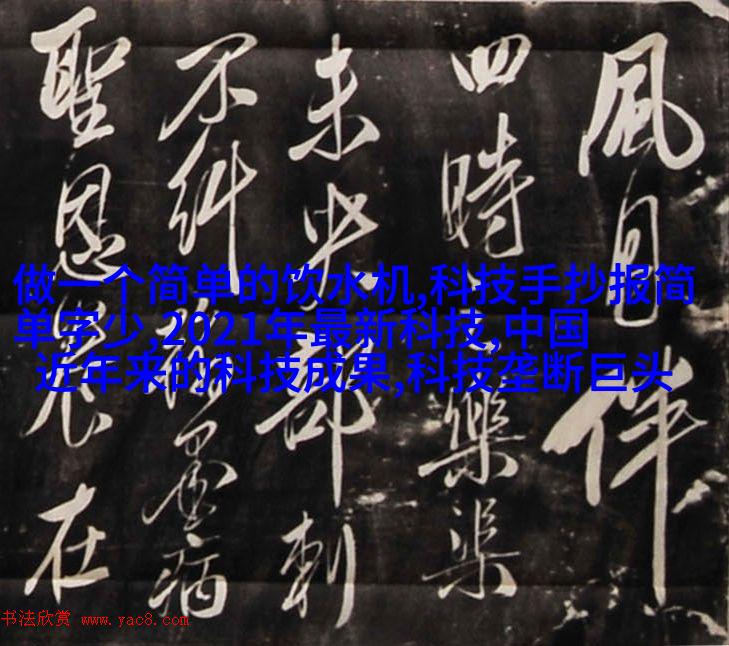 風月伴
四時樂柒
未央部刺
不糾病
聖恩在
做一个简单的饮水机,科技手抄报简
单字少,2021年最新科技,中国
近年来的科技成果,科技垄断巨头
书法欣赏 www.yac8.com